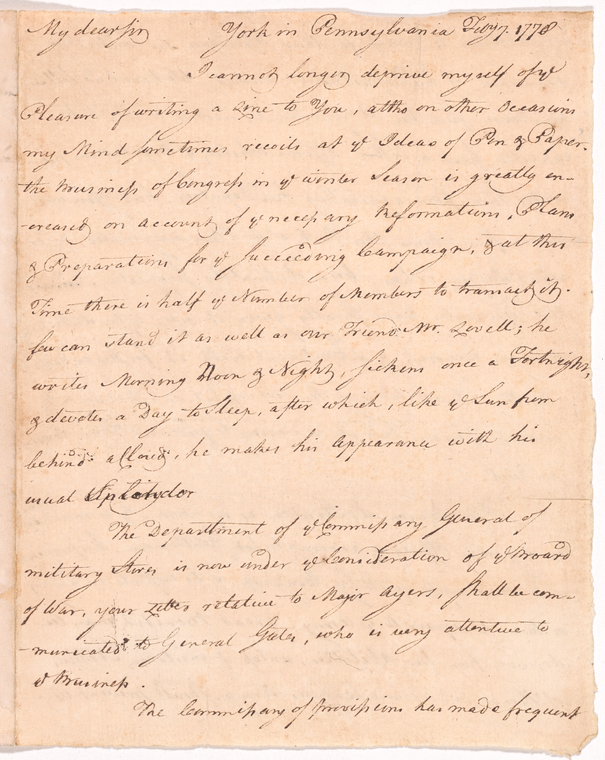 My dear Sir York in Pennsylvania Feby 7 1778
I cannot longer deprive myself of ye
Pleasure of writing a Line to You, altho on other Occasions
my Mind sometimes recoils at ye Ideas of Pen & Paper.
the Business of Congress in ye winter Season is greatly en-
-creased on account of ye necessary Reformations, Plans
& Preparations for ye succeeding Campaign, & at this
Time there is half ye Number of Members to transact it.
few can stand it as well as our Friend Mr. Lovell; he
writes Morning Noon & Night, sickens once a Fortnight,
& devotes a Day to Sleep, after which, like ye Sun from
behind a Cloud, he makes his appearance with his
usual Splendor
The Department of ye Commissary General of
military Stores is now under ye Consideration of ye Board
of War, your Letter relative to Major Ayers, shall be com-
-municated to General Gates, who is very attentive to
ye Business.
The Commissary of Provisions has made frequent